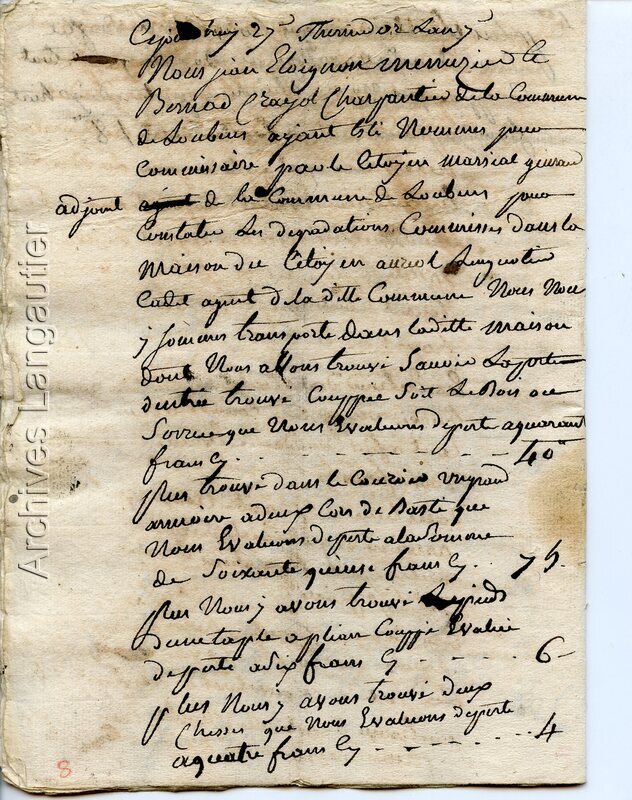 Cejourdhuy 27e Thermidor Lan 7e
Nous jean Eloignon menuzier Ce
Bernad Crayol Charpantier de la Commune
de Loubens ayant Esté Nommes pour
Commissaire par le Citoyen marsial guiraud
adjoint agent de la Commune de Loubens pour
Constater Les degradations Commisses dans la
maison du Citoyen auriol
Cadet agent de la ditte Commune Nous Nou
y sommes transporte dans laditte maison
dont Nous avons trouvé Savoir La porte
dentrée trouvé Couppée Soit Le Bois ou
Serrure que Nous Evaluons de perte aquarant
frans Cy - - - - - - - 40
plus trouvé dans le Couroir un grand
armoire a deux Cors de Basté que
Nous Evaluons de perte a la Somme
de Soixante quinse frans Cy . . 75.
plus Nous y avons trouvé Le pieds
dune taple a plian Couppé Evalué
de perte a Six frans Cy - - - - 6
plus Nous y avons trouvé deux
Chesses que Nous Evaluons de perte
aquatre frans Cy - - - - - - - 4
8
Archives Langautier